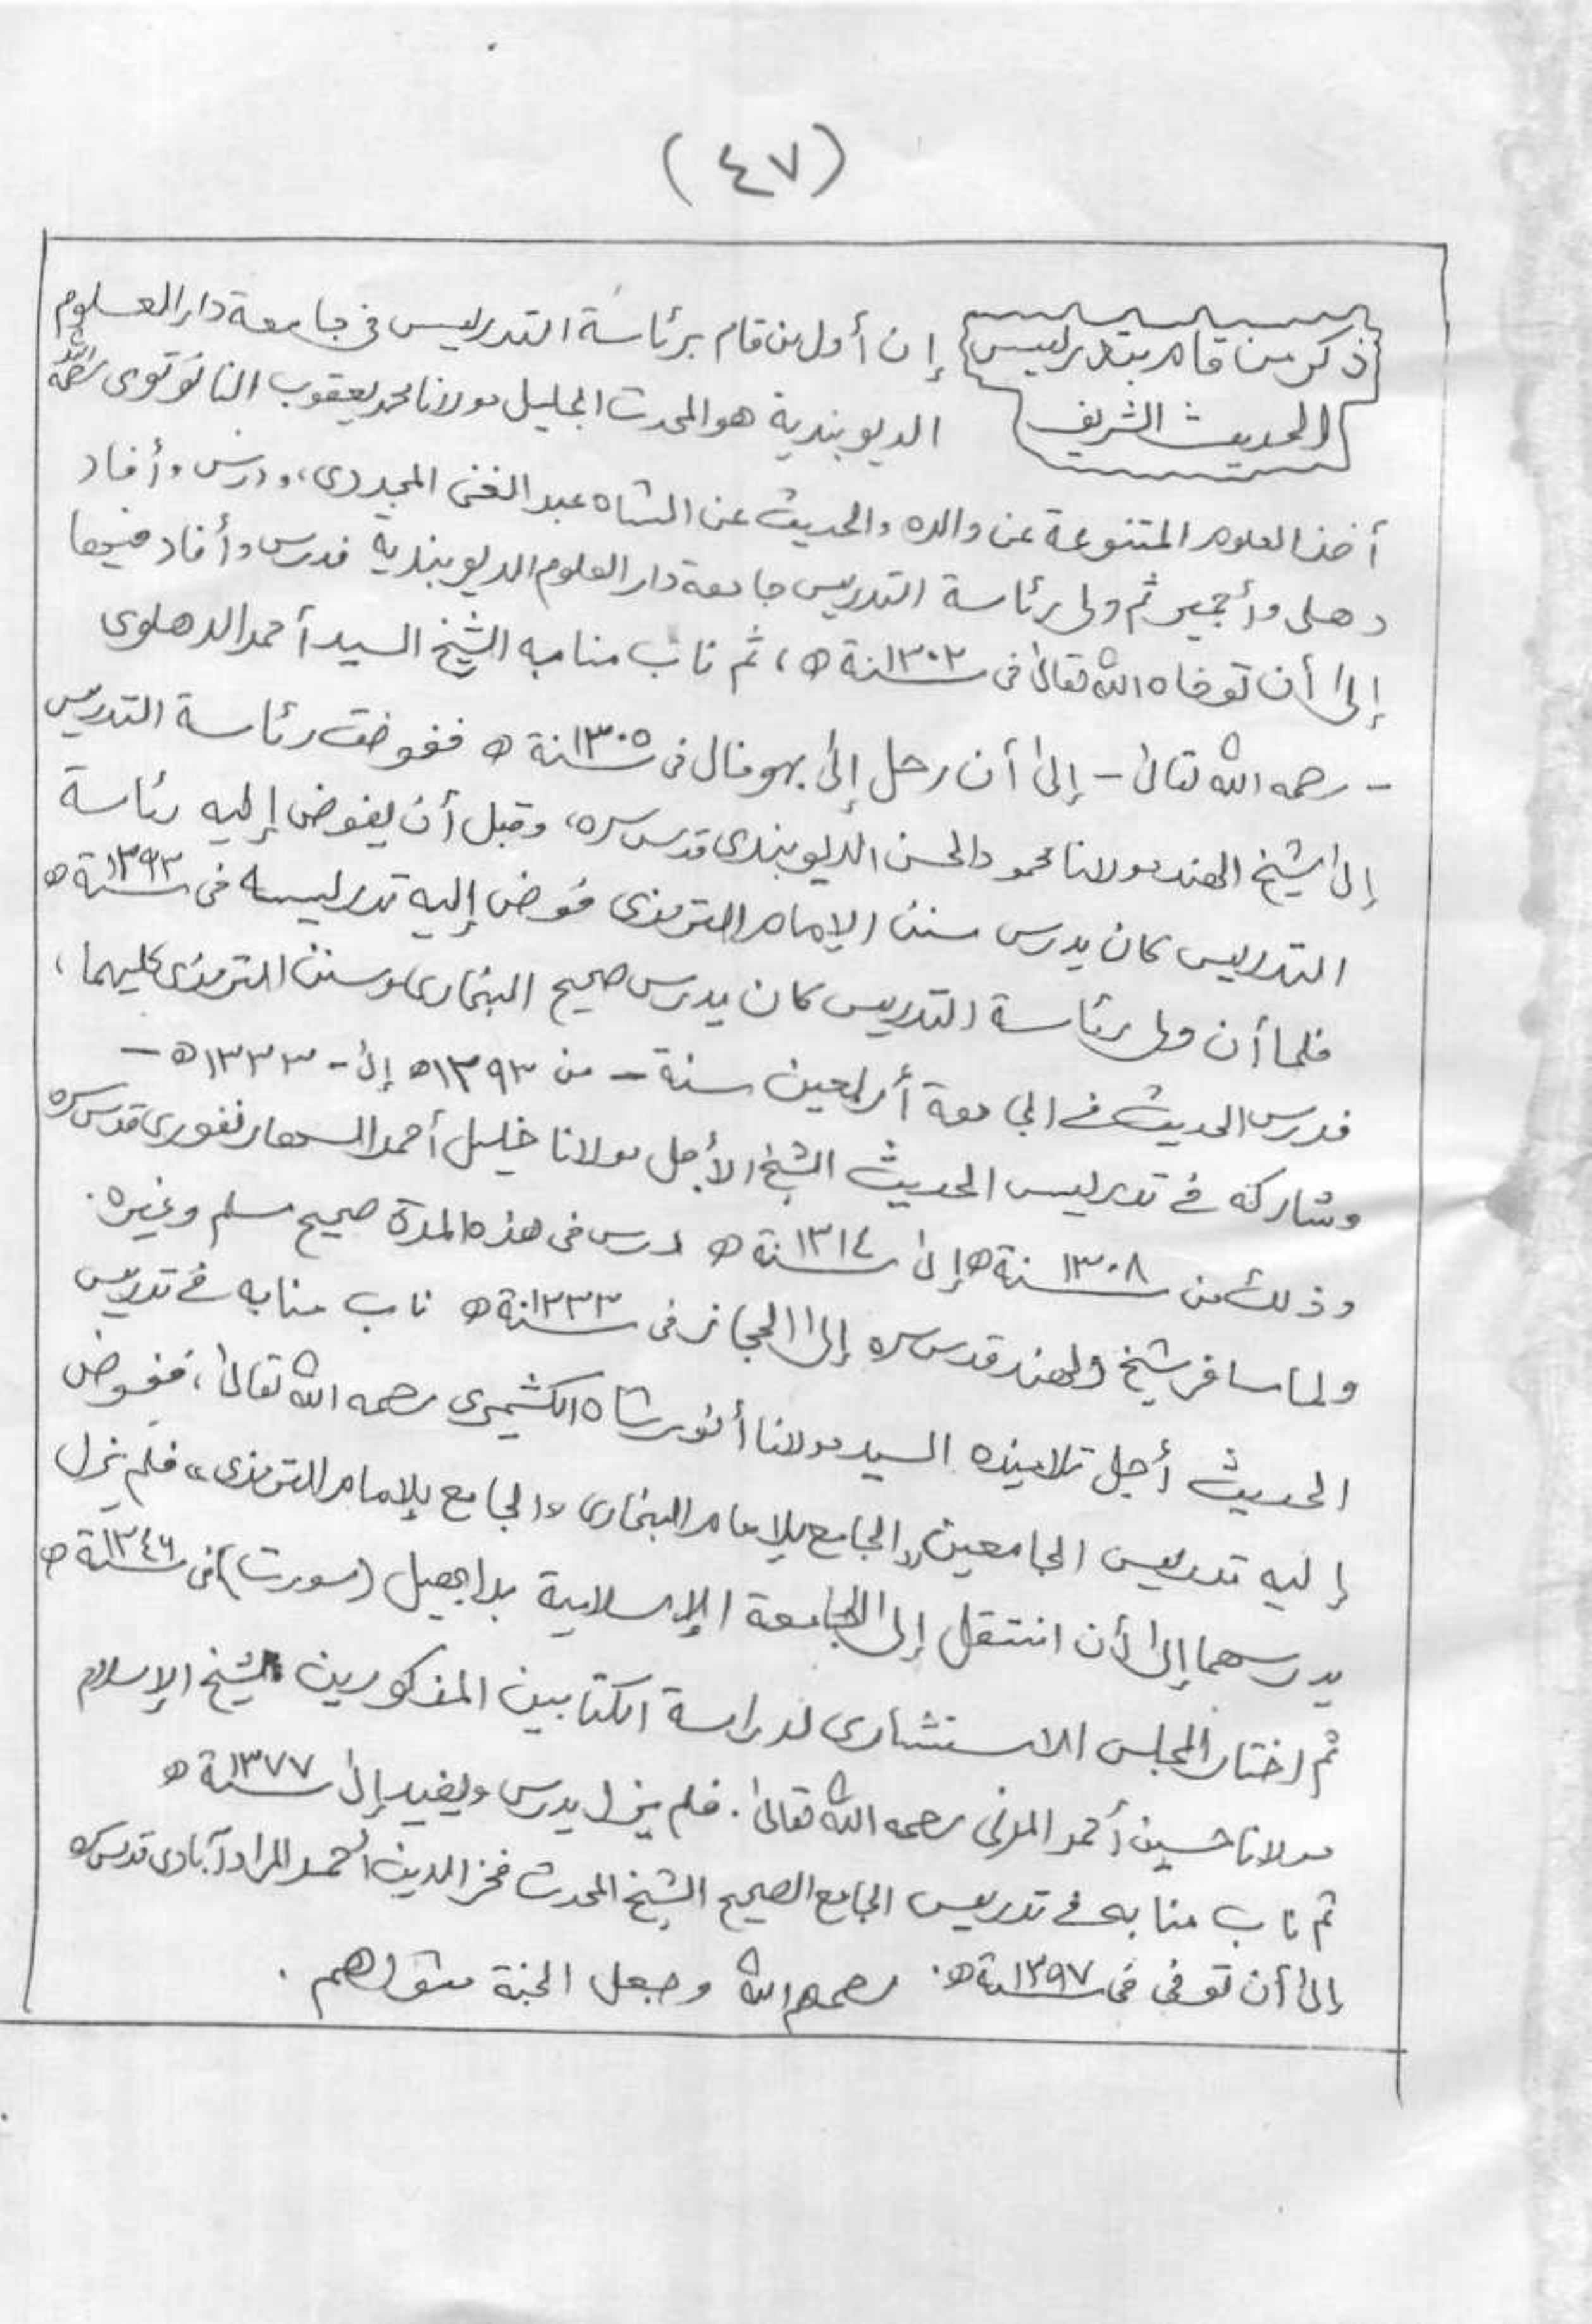 (٤٧)
ذكر من قام بتدريس
الحديث الشريف
إن أول من قام برئاسة التدريس في جامعة دار العلوم
الديوبندية هو المحدث الجليل مولانا محمد يعقوب النانوتوى رحمه الله
أخذ العلوم المتنوعة عن والده والحديث عن الشاه عبد الغنى المجددى، ودرس وأفاد
دهلى وأجمير ثم ولى رئاسة التدريس جامعة دار العلوم الديوبندية فدرس وأفاد فيها
إلى أن توفاه الله تعالى فى سنة ١٣٠٢ ه، ثم ناب منابه الشيخ السيد أحمد الدهلوى
- رحمه الله تعالى - إلى أن رحل إلى بهوفال فى سنة ١٣٠٥ ه ففوضت رئاسة التدريس
إلى شيخ الهند مولانا محمود الحسن الديوبندى قدس سره، وقبل أن يفوض إليه رئاسة
التدريس كان يدرس سنن الإمام الترمذى فوض إليه تدريسه فى سنة ١٣٩٣ ه
فلما أن ولى رئاسة التدريس كان يدرس صحيح البخارى وسنن الترمذى كليهما،
فدرس الحديث في الجامعة أربعين سنة - من ١٣٩٣ ه إلى - ١٣٣٣ ه -
وشاركه في تدريس الحديث الشيخ الأجل مولانا خليل أحمد السهارنفورى قدس سره
وذلك من سنة ١٣٠٨ ه إلى سنة ١٣١٤ ه درس فى هذه المدة صحيح مسلم وغيره.
ولما سافر شيخ الهند قدس سره إلى الحجاز فى سنة ١٣٣٣ ه ناب منابه في تدريس
الحديث أجل تلاميذه السيد مولانا أنور شاه الكشميرى رحمه الله تعالى، ففوض
إليه تدريس الجامعين "الجامع للإمام البخارى والجامع للإمام الترمذى" فلم يزل
يدرسهما إلى أن انتقل إلى الجامعة الإسلامية بداجهيل (سورت) فى سنة ١٣٤٦ ه
ثم اختار المجلس الاستشارى لدراسة الكتابين المذكورين الشيخ الإسلام
مولانا حسين أحمد المدنى رحمه الله تعالى. فلم يزل يدرس ويفيد إلى سنة ١٣٧٧ ه
ثم ناب منابه في تدريس الجامع الصحيح الشيخ المحدث فخر الدين أحمد المرادآبادى قدس سره
إلى أن توفى فى سنة ١٣٩٧ ه. رحمهم الله وجعل الجنة مثواهم.